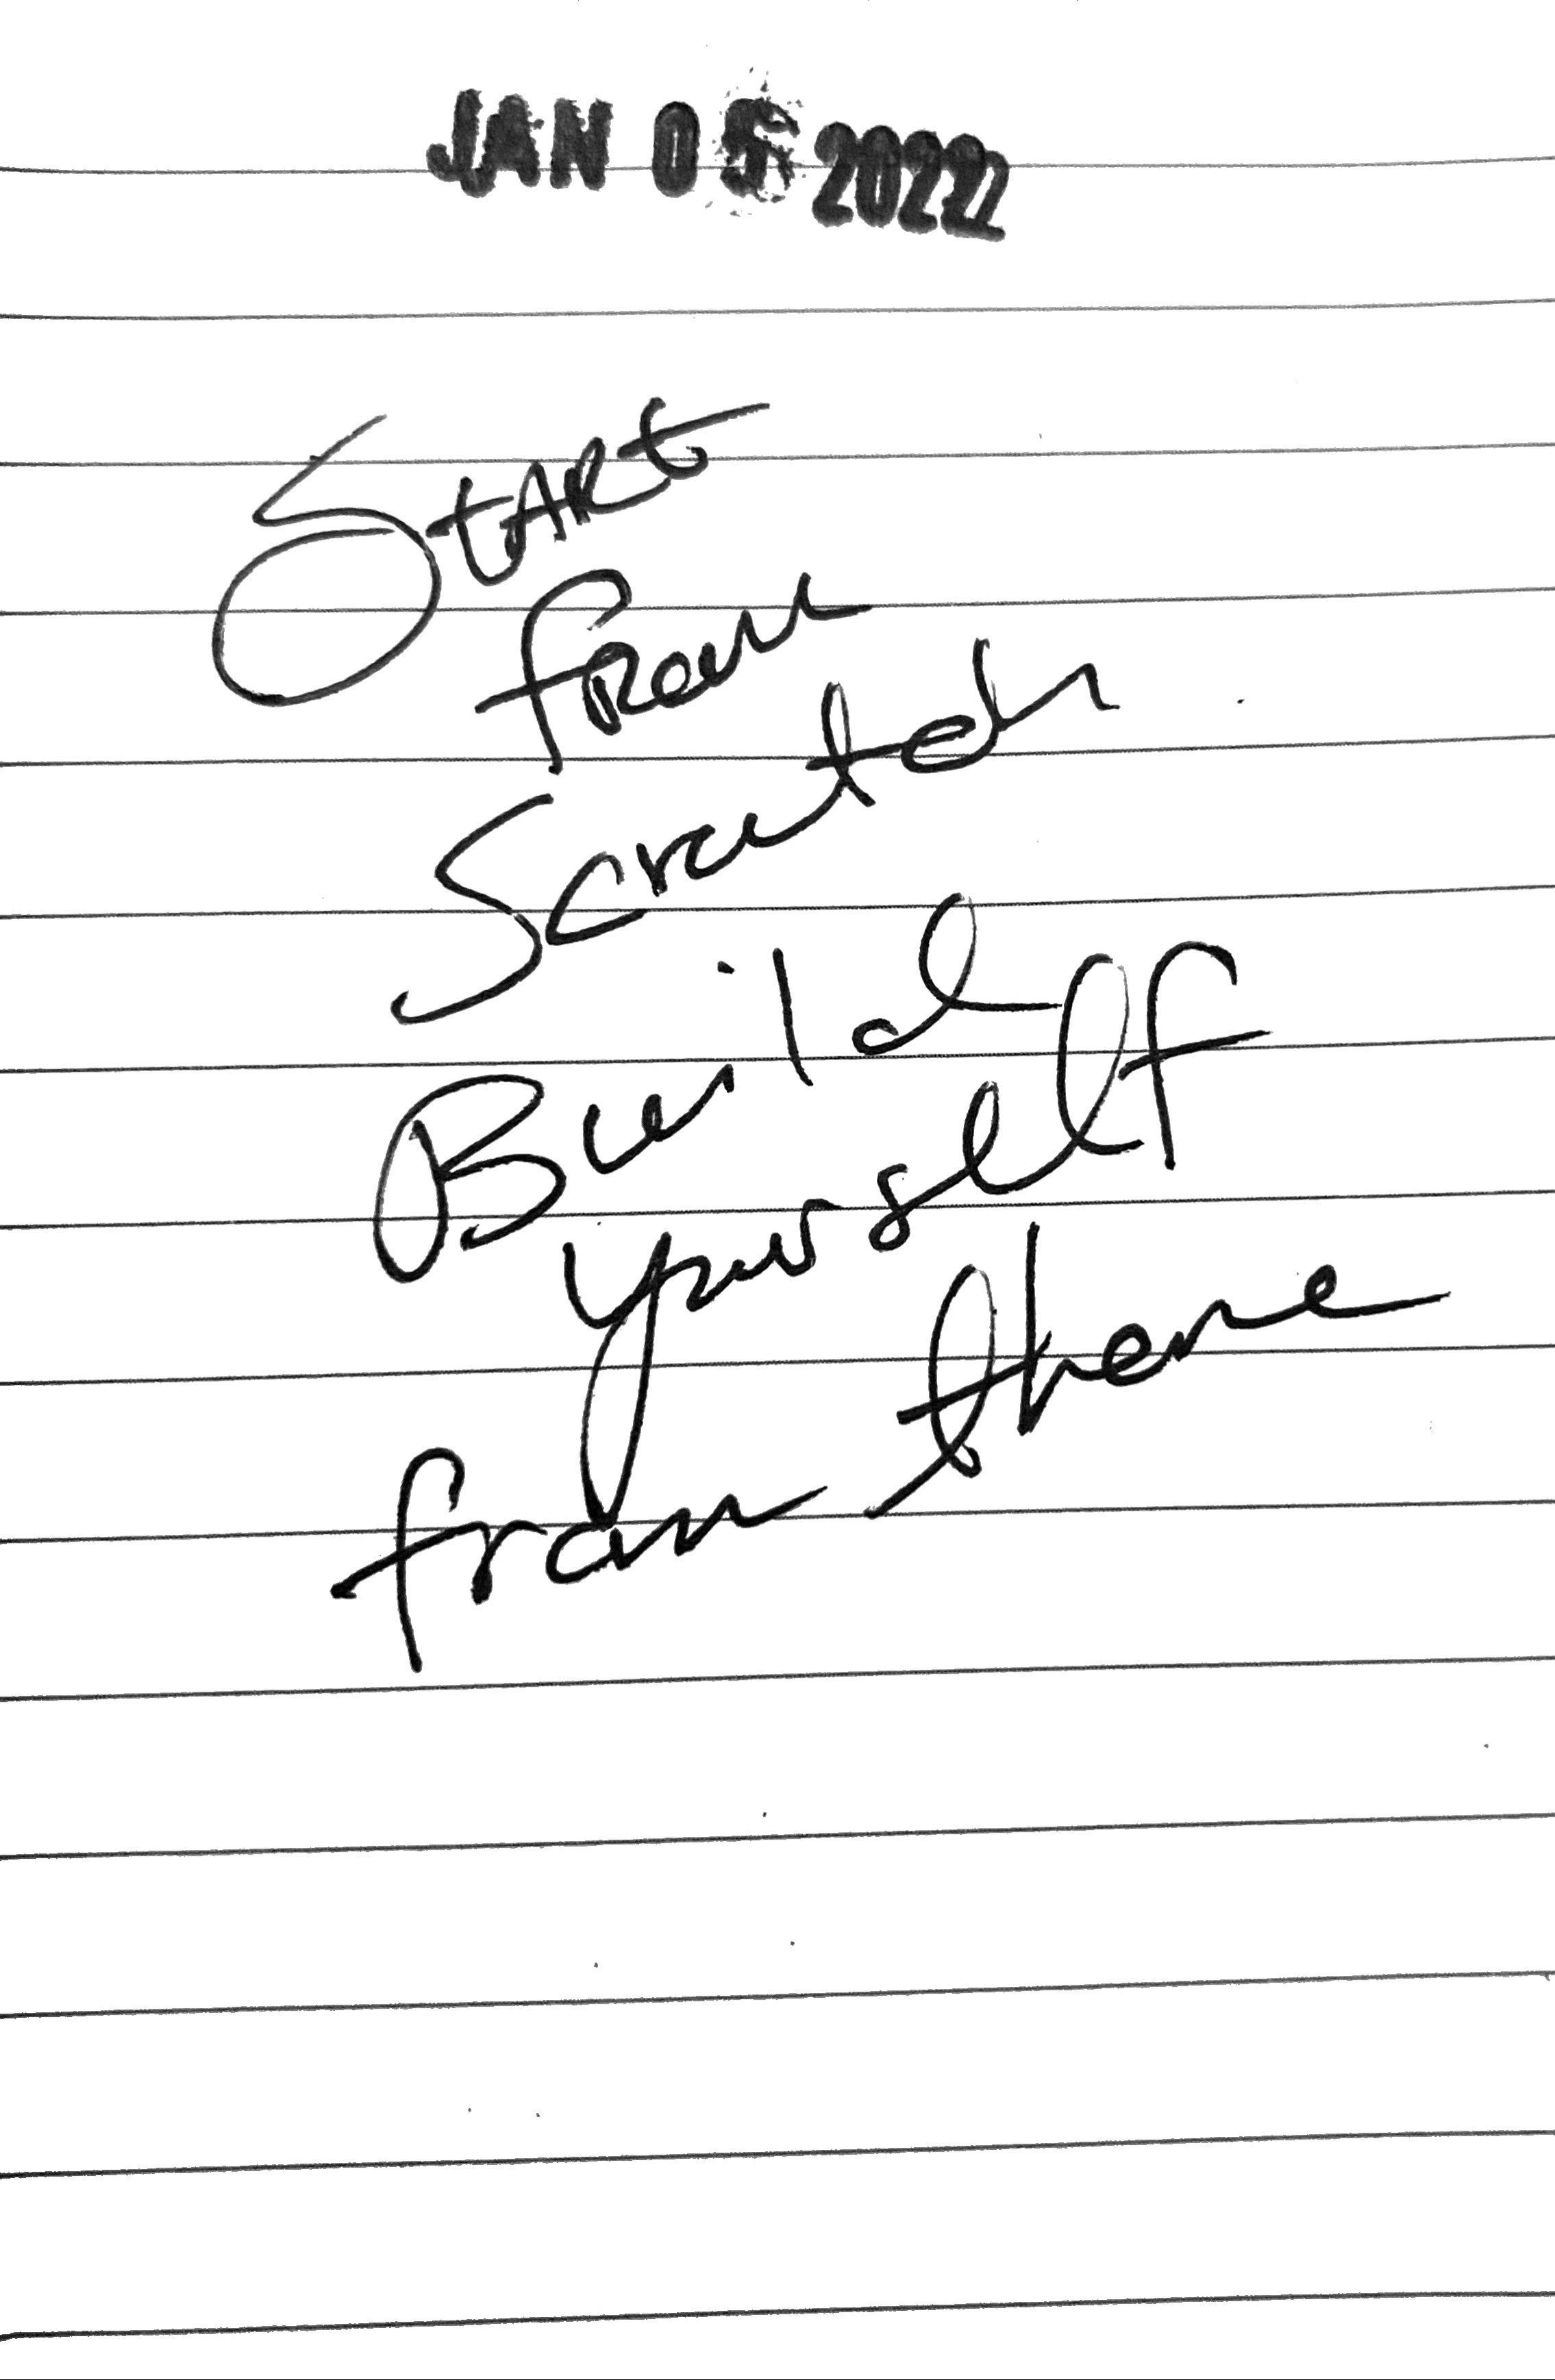 JAN 05 2022
Start
from
Scratch
Build
yourself
from there